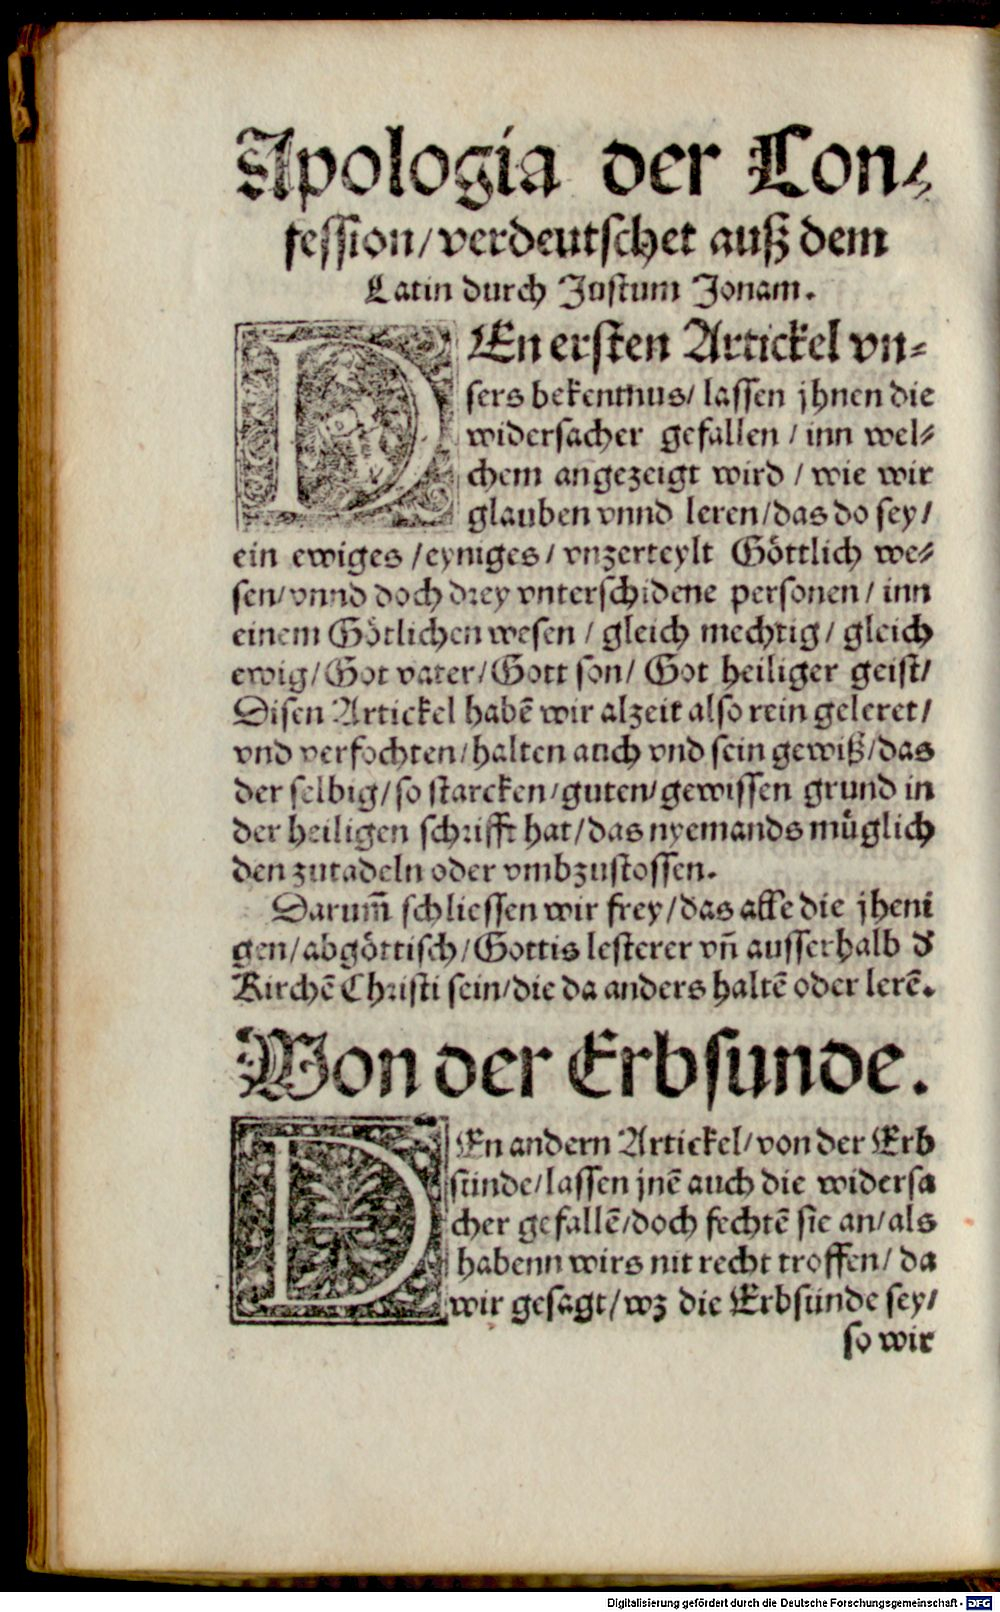 Apologia der Con⸗
fession/ verdeutschet auß dem
Latin durch Justum Jonam.
DEn ersten Artickel vn⸗
sers bekentnus/ lassen jhnen die
widersacher gefallen / inn wel⸗
chem angezeigt wird / wie wir
glauben vnnd leren/ das do sey/
ein ewiges / eyniges / vnzerteylt Göttlich we⸗
sen/ vnnd doch drey vnterschidene personen / inn
einem Götlichen wesen / gleich mechtig / gleich
ewig/ Got vater/ Gott son/ Got heiliger geist/
Disen Artickel habē wir alzeit also rein geleret/
vnd verfochten/ halten auch vnd sein gewiß/ das
der selbig/ so starcken/ guten/ gewissen grund in
der heiligen schrifft hat/ das nyemands müglich
den zutadeln oder vmbzustossen.
Darum̄ schliessen wir frey/ das alle die jheni
gen/ abgöttisch/ Gottis lesterer vn̄ ausserhalb d'
Kirchē Christi sein/ die da anders haltē oder lerē.
Von der Erbsunde.
DEn andern Artickel/ von der Erb
sünde/ lassen jnē auch die widersa
cher gefallē/ doch fechtē sie an/ als
habenn wirs nit recht troffen/ da
wir gesagt/ wz die Erbsünde sey/
so wir
Digitalisierung gefördert durch die Deutsche Forschungsgemeinschaft - DFG